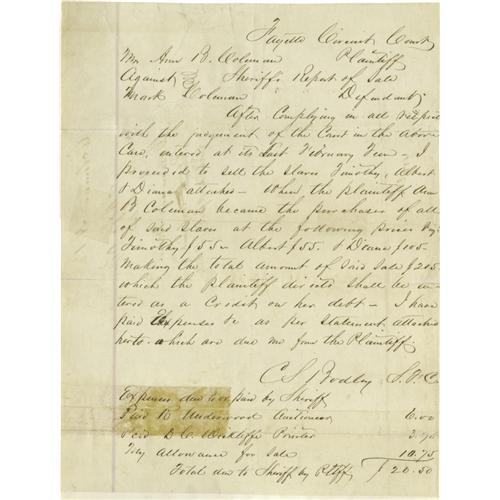 Fayette Circuit Court
Mrs Ann B. Coleman Plaintiff
Against Sheriff's Report of Sale
Mark Coleman Defendant
After Complying in all respect
with the judgement of the Court in the above
Case, entered at its last February Term, I
proceeded to sell the slaves Timothy, Albert
& Diana attached - When the plaintiff Ann
B Coleman became the purchaser of all
of said slaves at the following prices
Timothy $55 - Albert $55. & Diana $105.
Making the total amount of said sale $205.
which the Plaintiff directed shall be en
tered as a Credit on her debt - I have
paid Expenses &c as per Statement attached
hereto - which are due me from the Plaintiff.
C S Bodley S. F. C.
Expenses due to & paid by Sheriff
Paid R Underwood Auctioneer 6.00
Paid D C Wickliffe Printer
My Allowance for Sale 10.75
Total due to Sheriff by Pltff $20.50